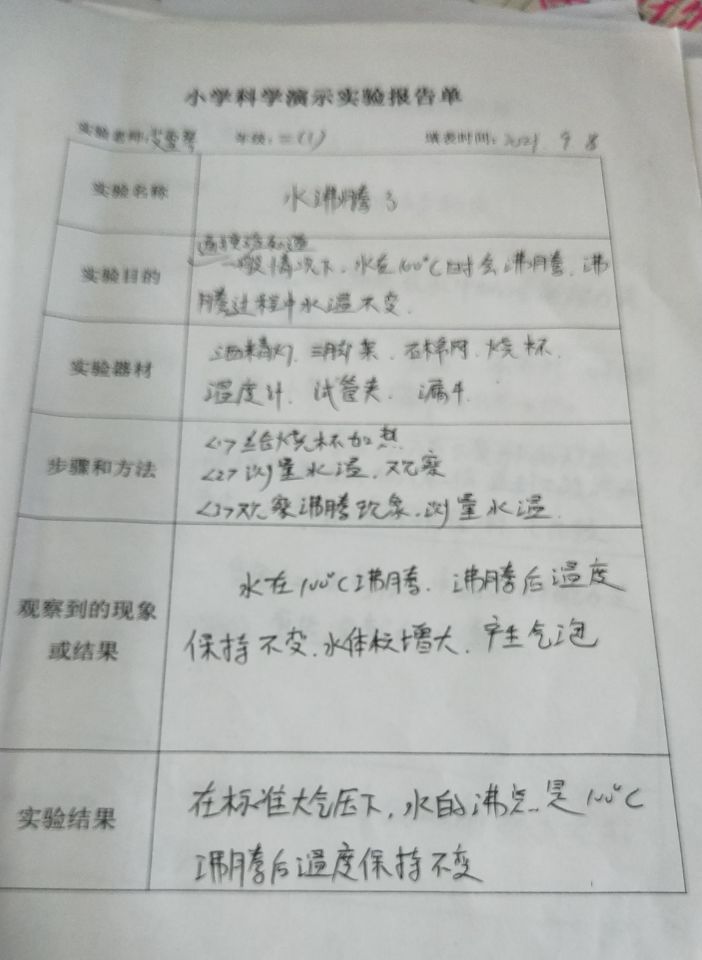 小学科学演示实验报告单
实验老师: 年级:三(1) 填表时间:2021 9 8
实验名称
水沸腾了
实验目的
通过实验知道
一般情况下,水在100°C时会沸腾,沸
腾过程中水温不变.
实验器材
酒精灯.三脚架.石棉网.烧杯.
温度计.试管夹.漏斗.
步骤和方法
<1>给烧杯加热
<2>测量水温,观察
<3>观察沸腾现象,测量水温.
观察到的现象
或结果
水在100°C沸腾.沸腾后温度
保持不变.水体积增大.产生气泡
实验结果
在标准大气压下,水的沸点是100°C
沸腾后温度保持不变